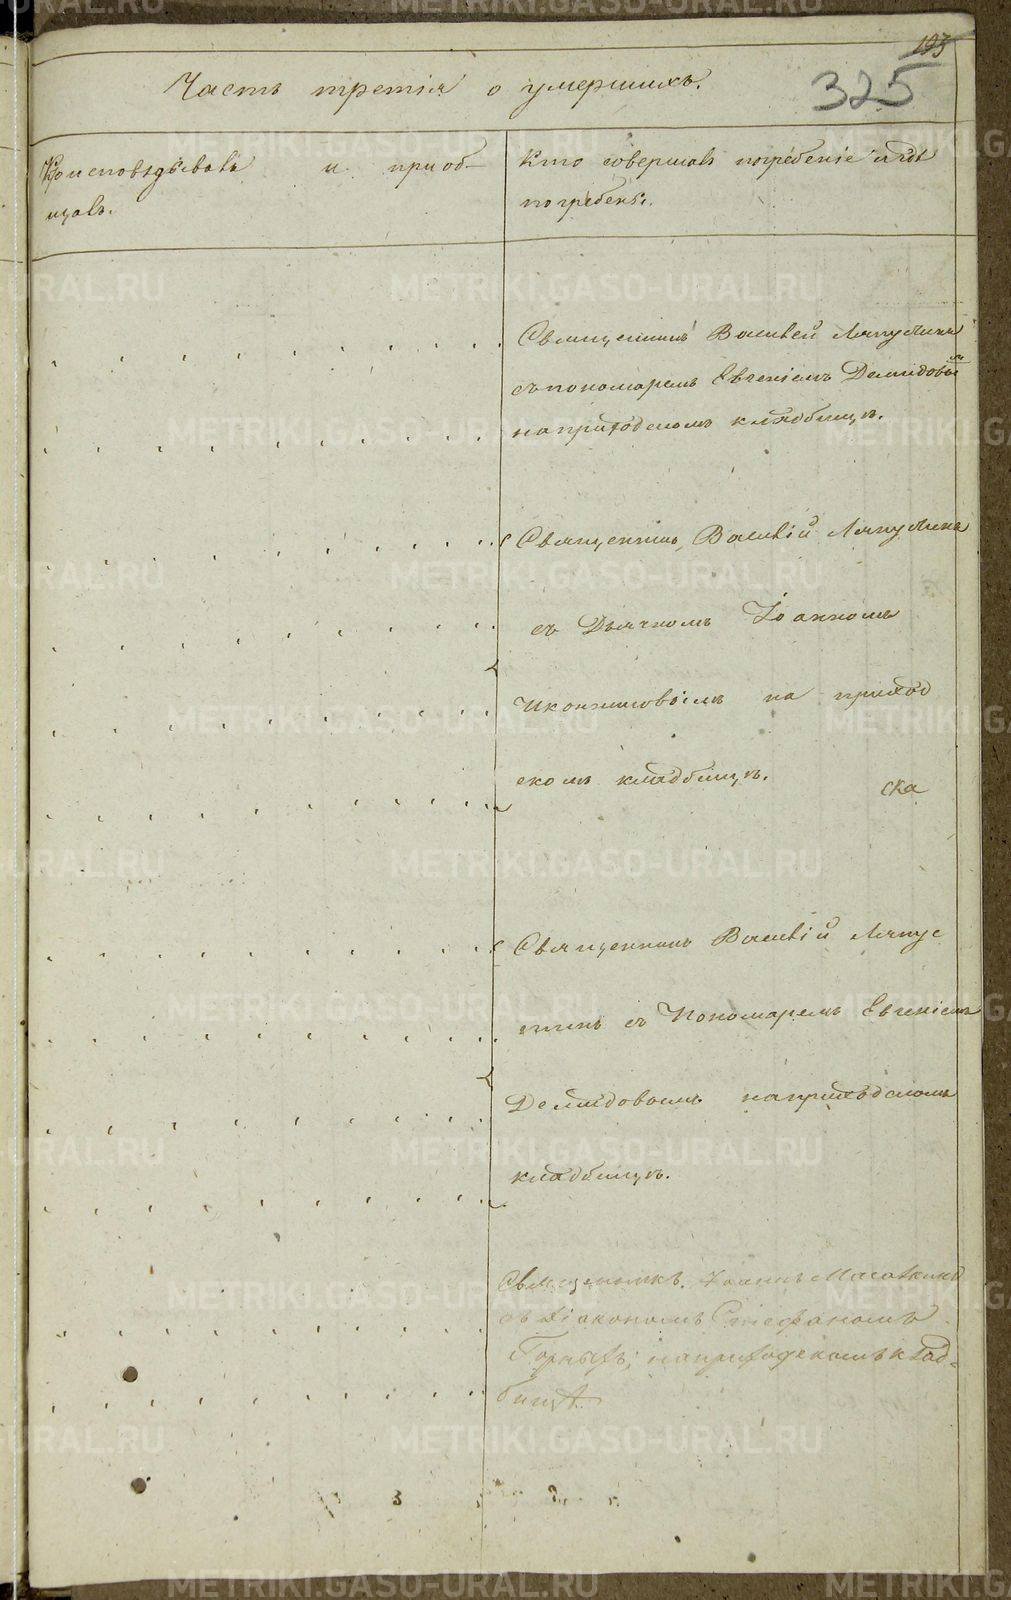 193
325
Часть третія о умершихъ.
Кто исповѣдывалъ и приоб-
щалъ.
Кто совершалъ погребеніе и гдѣ
погребены.
Священникъ Василій Ляпустинъ
съ пономаремъ Евгеніемъ Демидовымъ
на приходскомъ кладбищѣ.
Священникъ Василій Ляпустинъ
съ Дьячкомъ Іоанномъ
на приход
скомъ кладбищѣ.
ска
Священникъ Василій Ляпус
тинъ съ Пономаремъ Евгеніемъ
Демидовымъ на приходскомъ
кладбищѣ.
Священникъ Іоаннъ
съ Діакономъ Стефаномъ
на приходскомъ клад-
бищѣ
METRIKI.GASO-URAL.RU